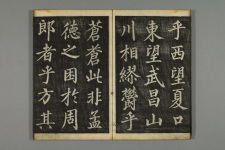 乎西望夏口
東望武昌山
川相繆鬱乎
蒼蒼此非孟
德之困於周
郎者乎方其